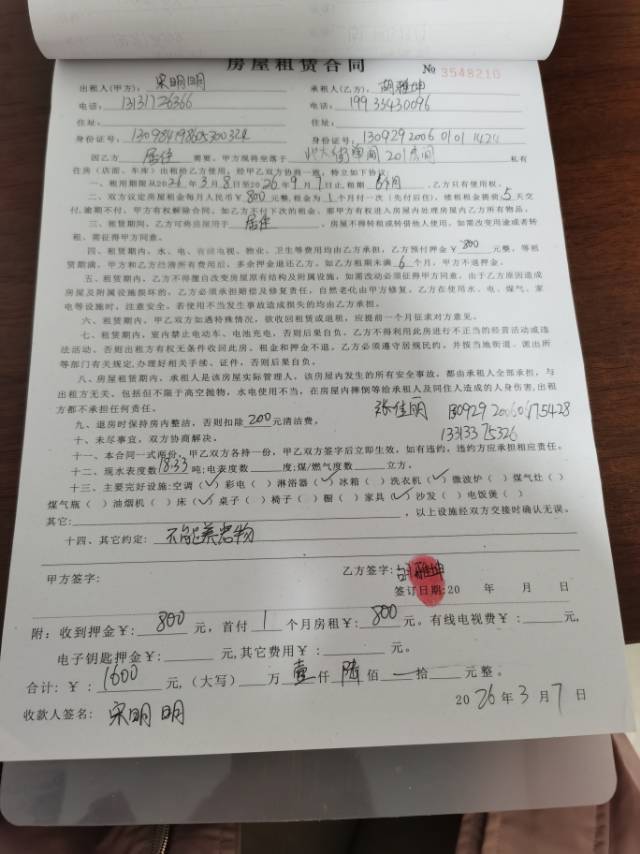 房屋租赁合同 № 3548210
出租人(甲方): 宋明明 承租人(乙方): 胡雅坤
电话: 13131726366 电话: 19933430096
住址: 住址:
身份证号: 身份证号: 130929200601011424
因乙方 居住 需要,甲方现将坐落于 201房间 私有
住房(店面、车库)出租给乙方使用;经甲乙双方协商一致,特立如下协议:
一、租用期限从2026年3月8日至2026年9月7日止,租期 6个月 ,乙方只有使用权。
二、双方议定房屋租金每月人民币¥ 800 元整,租金为 1 个月付一次(先付后住),续租租金提前 5 天交
付,逾期不付,甲方有权解除合同。如乙方不付下次的租金,那甲方有权进入房屋内处理房屋内乙方所有物品。
三、租赁期间,乙方可将房屋用于 居住 。房屋不得转租或转借他人使用,如需改变用途或者转
租,需征得甲方同意。
四、租赁期内,水、电、有线电视、物业、卫生等费用均由乙方承担,乙方预付押金¥ 800 元整,等租
赁期满,甲方和乙方结清所有费用后,多余押金退还乙方。如乙方租期未满 6 个月,甲方不退押金。
五、租赁期内,乙方不得擅自改变房屋原有结构及附属设施,如需改动必须征得甲方同意。由于乙方原因造成
房屋及附属设施损坏的,乙方必须承担赔偿及修复责任,自然老化由甲方修复。乙方在使用水、电、煤气、家
电等设施时,注意安全。若使用不当发生事故造成损失的均由乙方承担。
六、租赁期内,甲乙双方如遇特殊情况,欲收回租赁或退租,应提前一个月征求对方意见。
七、租赁期内,室内禁止电动车、电池充电,否则后果自负。乙方不得利用此房进行不正当的经营活动或违
法活动。否则出租方有权无条件收回此房。租金和押金不退。乙方必须遵守居规民约,并按当地街道、派出所
等部门有关规定,办理好相关手续、证件,否则后果自负。
八、房屋租赁期内,承租人是该房屋实际管理人,该房屋内发生的所有安全事故,都由承租人全部承担,与
出租方无关,包括但不限于高空抛物,水电使用不当,在房屋内摔倒等给承租人及同住人造成的人身伤害,出租
方都不承担任何责任。
张佳丽
九、退房时保持房内整洁,否则扣除 200 元清洁费。
十、未尽事宜,双方协商解决。 1313375326
十一、本合同一式两份,甲乙双方各持一份,甲乙双方签字后立即生效,如有违约,违约方应承担相应责任。
十二、现水表度数 1833 吨;电表度数 度;煤/燃气度数 立方。
十三、主要完好设施:空调(✓)彩电( )淋浴器(✓)冰箱( )洗衣机(✓)微波炉( )煤气灶( )
煤气瓶( )油烟机( )床(✓)桌子( )椅子( )橱( )家具(✓)沙发( )电饭煲( )
其它: ,以上设施经双方交接时确认无误。
十四、其它约定: 不能养宠物
甲方签字: 乙方签字: 胡雅坤
签订日期:20 年 月 日
附:收到押金¥: 800 元,首付 1 个月房租¥: 800 元。有线电视费¥: 元,
电子钥匙押金¥: 元,其它费用¥: 元。
合计:¥: 1600 元,(大写) 万 壹 仟 陆 佰 一 拾 元整。
收款人签名: 宋明明 2026年3月7日